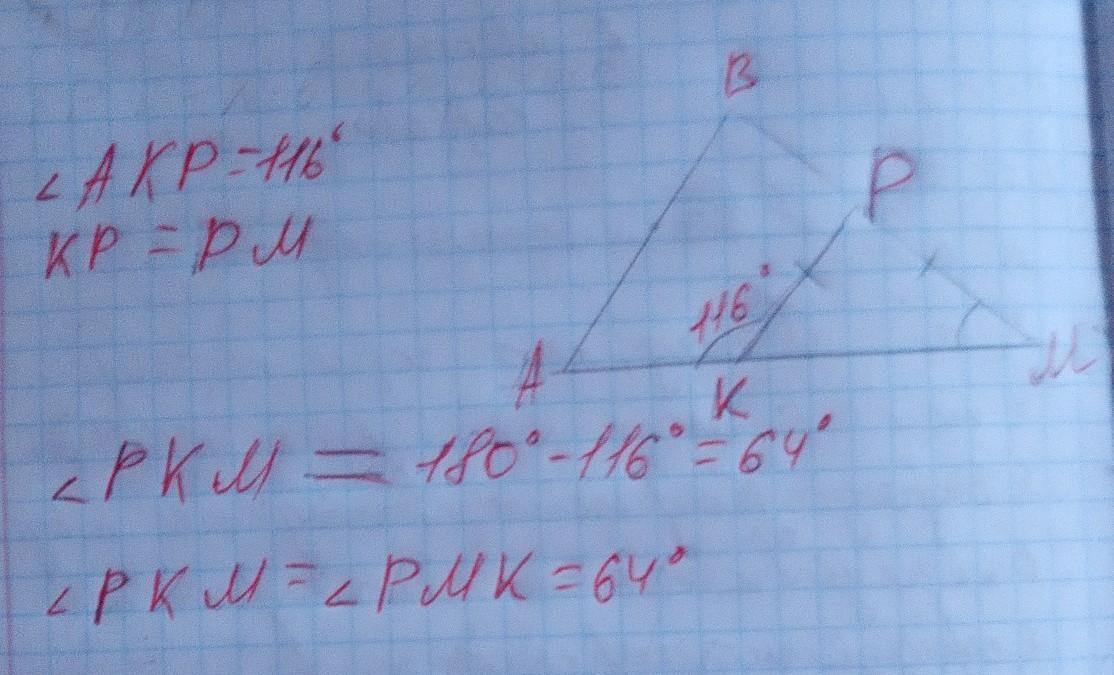 ∠AKP=116°
KP = PM
B
P
116°
A
K
M
∠PKM = 180°-116°=64°
∠PKM=∠PMK=64°